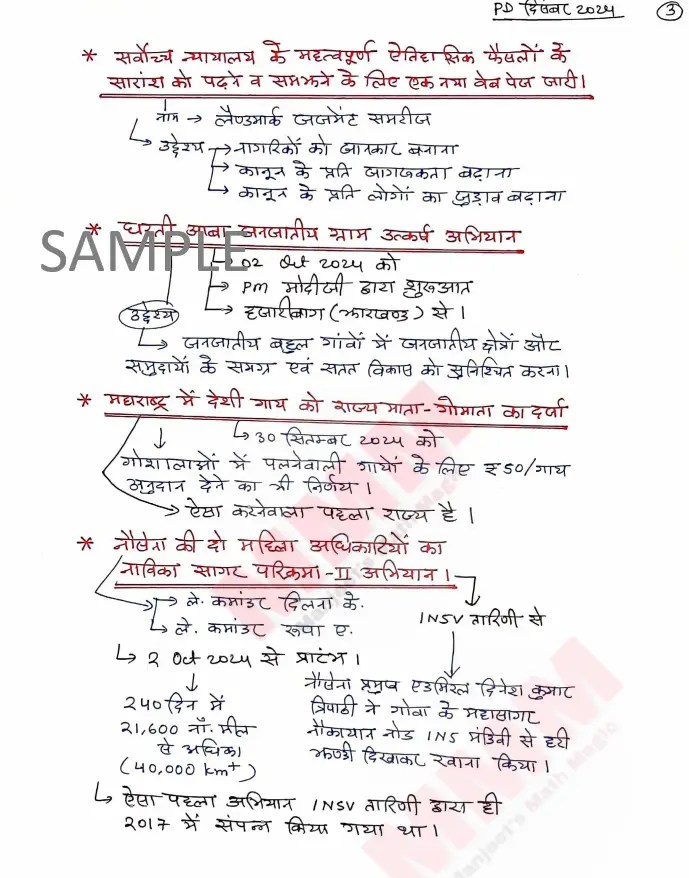 PD दिसंबर 2024 3
* सर्वोच्च न्यायालय के महत्वपूर्ण ऐतिहासिक फैसलों के
सारांश को पढ़ने व समझने के लिए एक नया वेब पेज जारी।
नाम → लैण्डमार्क जजमेंट समरीज
उद्देश्य → नागरिकों को जानकार बनाना
→ कानून के प्रति जागरूकता बढ़ाना
→ कानून के प्रति लोगों का जुड़ाव बढ़ाना
* धरती आबा जनजातीय ग्राम उत्कर्ष अभियान
SAMPLE
→ 02 Oct 2024 को
→ PM मोदीजी द्वारा शुरुआत
→ हजारीबाग (झारखण्ड) से।
उद्देश्य
→ जनजातीय बहुल गांवों में जनजातीय क्षेत्रों और
समुदायों के समग्र एवं सतत विकास को सुनिश्चित करना।
* महाराष्ट्र में देशी गाय को राज्यमाता-गोमाता का दर्जा
→ 30 सितम्बर 2024 को
गोशालाओं में पलनेवाली गायों के लिए ₹50/गाय
अनुदान देने का भी निर्णय।
→ ऐसा करनेवाला पहला राज्य है।
* नौसेना की दो महिला अधिकारियों का
नाविका सागर परिक्रमा-II अभियान।
→ ले. कमांडर दिलना के.
→ ले. कमांडर रूपा ए.
INSV तारिणी से
→ 2 Oct 2024 से प्रारंभ।
240 दिन में
21,600 नॉ. मील
से अधिक।
(40,000 km+)
नौसेना प्रमुख एडमिरल दिनेश कुमार
त्रिपाठी ने गोवा के महासागर
नौकायान नोड INS मंडोवी से हरी
झण्डी दिखाकर रवाना किया।
→ ऐसा पहला अभियान INSV तारिणी द्वारा ही
2017 में संपन्न किया गया था।
MMM
Manjeet's Math Magic
MMM
Manjeet's Math Magic